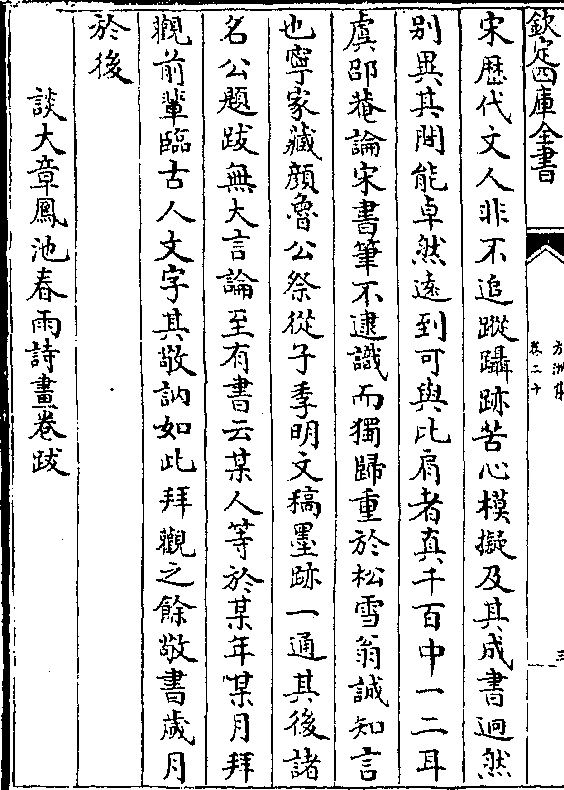 欽定四庫全書
方洲集
卷二十
宋歷代文人非不追蹤躡跡苦心模擬及其成書迥然
别異其間能卓然遠到可與比肩者真千百中一二耳
虞邵菴論宋書筆不逮識而獨歸重於松雪翁誠知言
也寧家藏顔魯公祭從子季明文稿墨跡一通其後諸
名公題跋無大言論至有書云某人等於某年某月拜
觀前輩臨古人文字其敬訥如此拜觀之餘敬書歲月
於後
談大章鳳池春雨詩畫卷跋